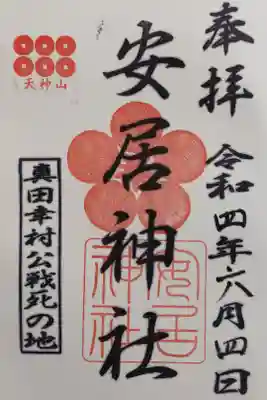 奉拝
令和四年六月四日
安居神社
安居
神社
天神山
真田幸村公戦死の地